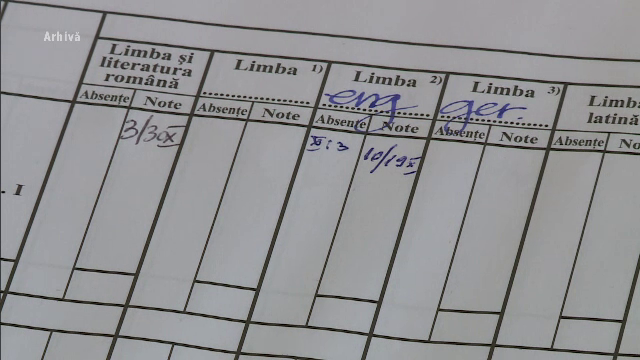 Arhivă
Limba și literatura română
Limba 1)
Limba 2)
eng
Limba 3)
ger.
Limb
latină
Absențe Note
Absențe Note
Absențe Note
Absențe Note
Absențe
. I
3/30IX
XI: 3
10/19XI